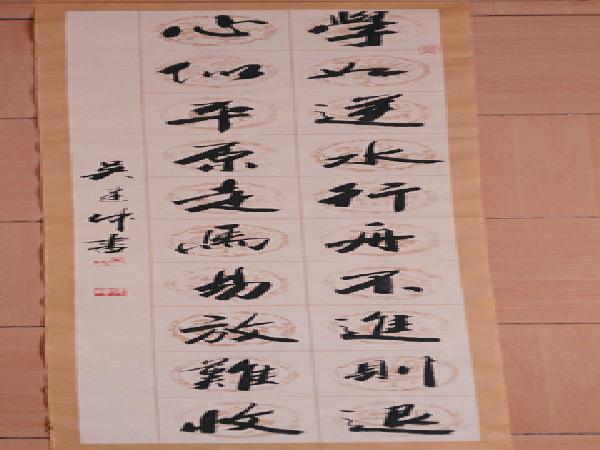 學如逆水行舟不進則退
心似平原走馬易放難收
吴建中書